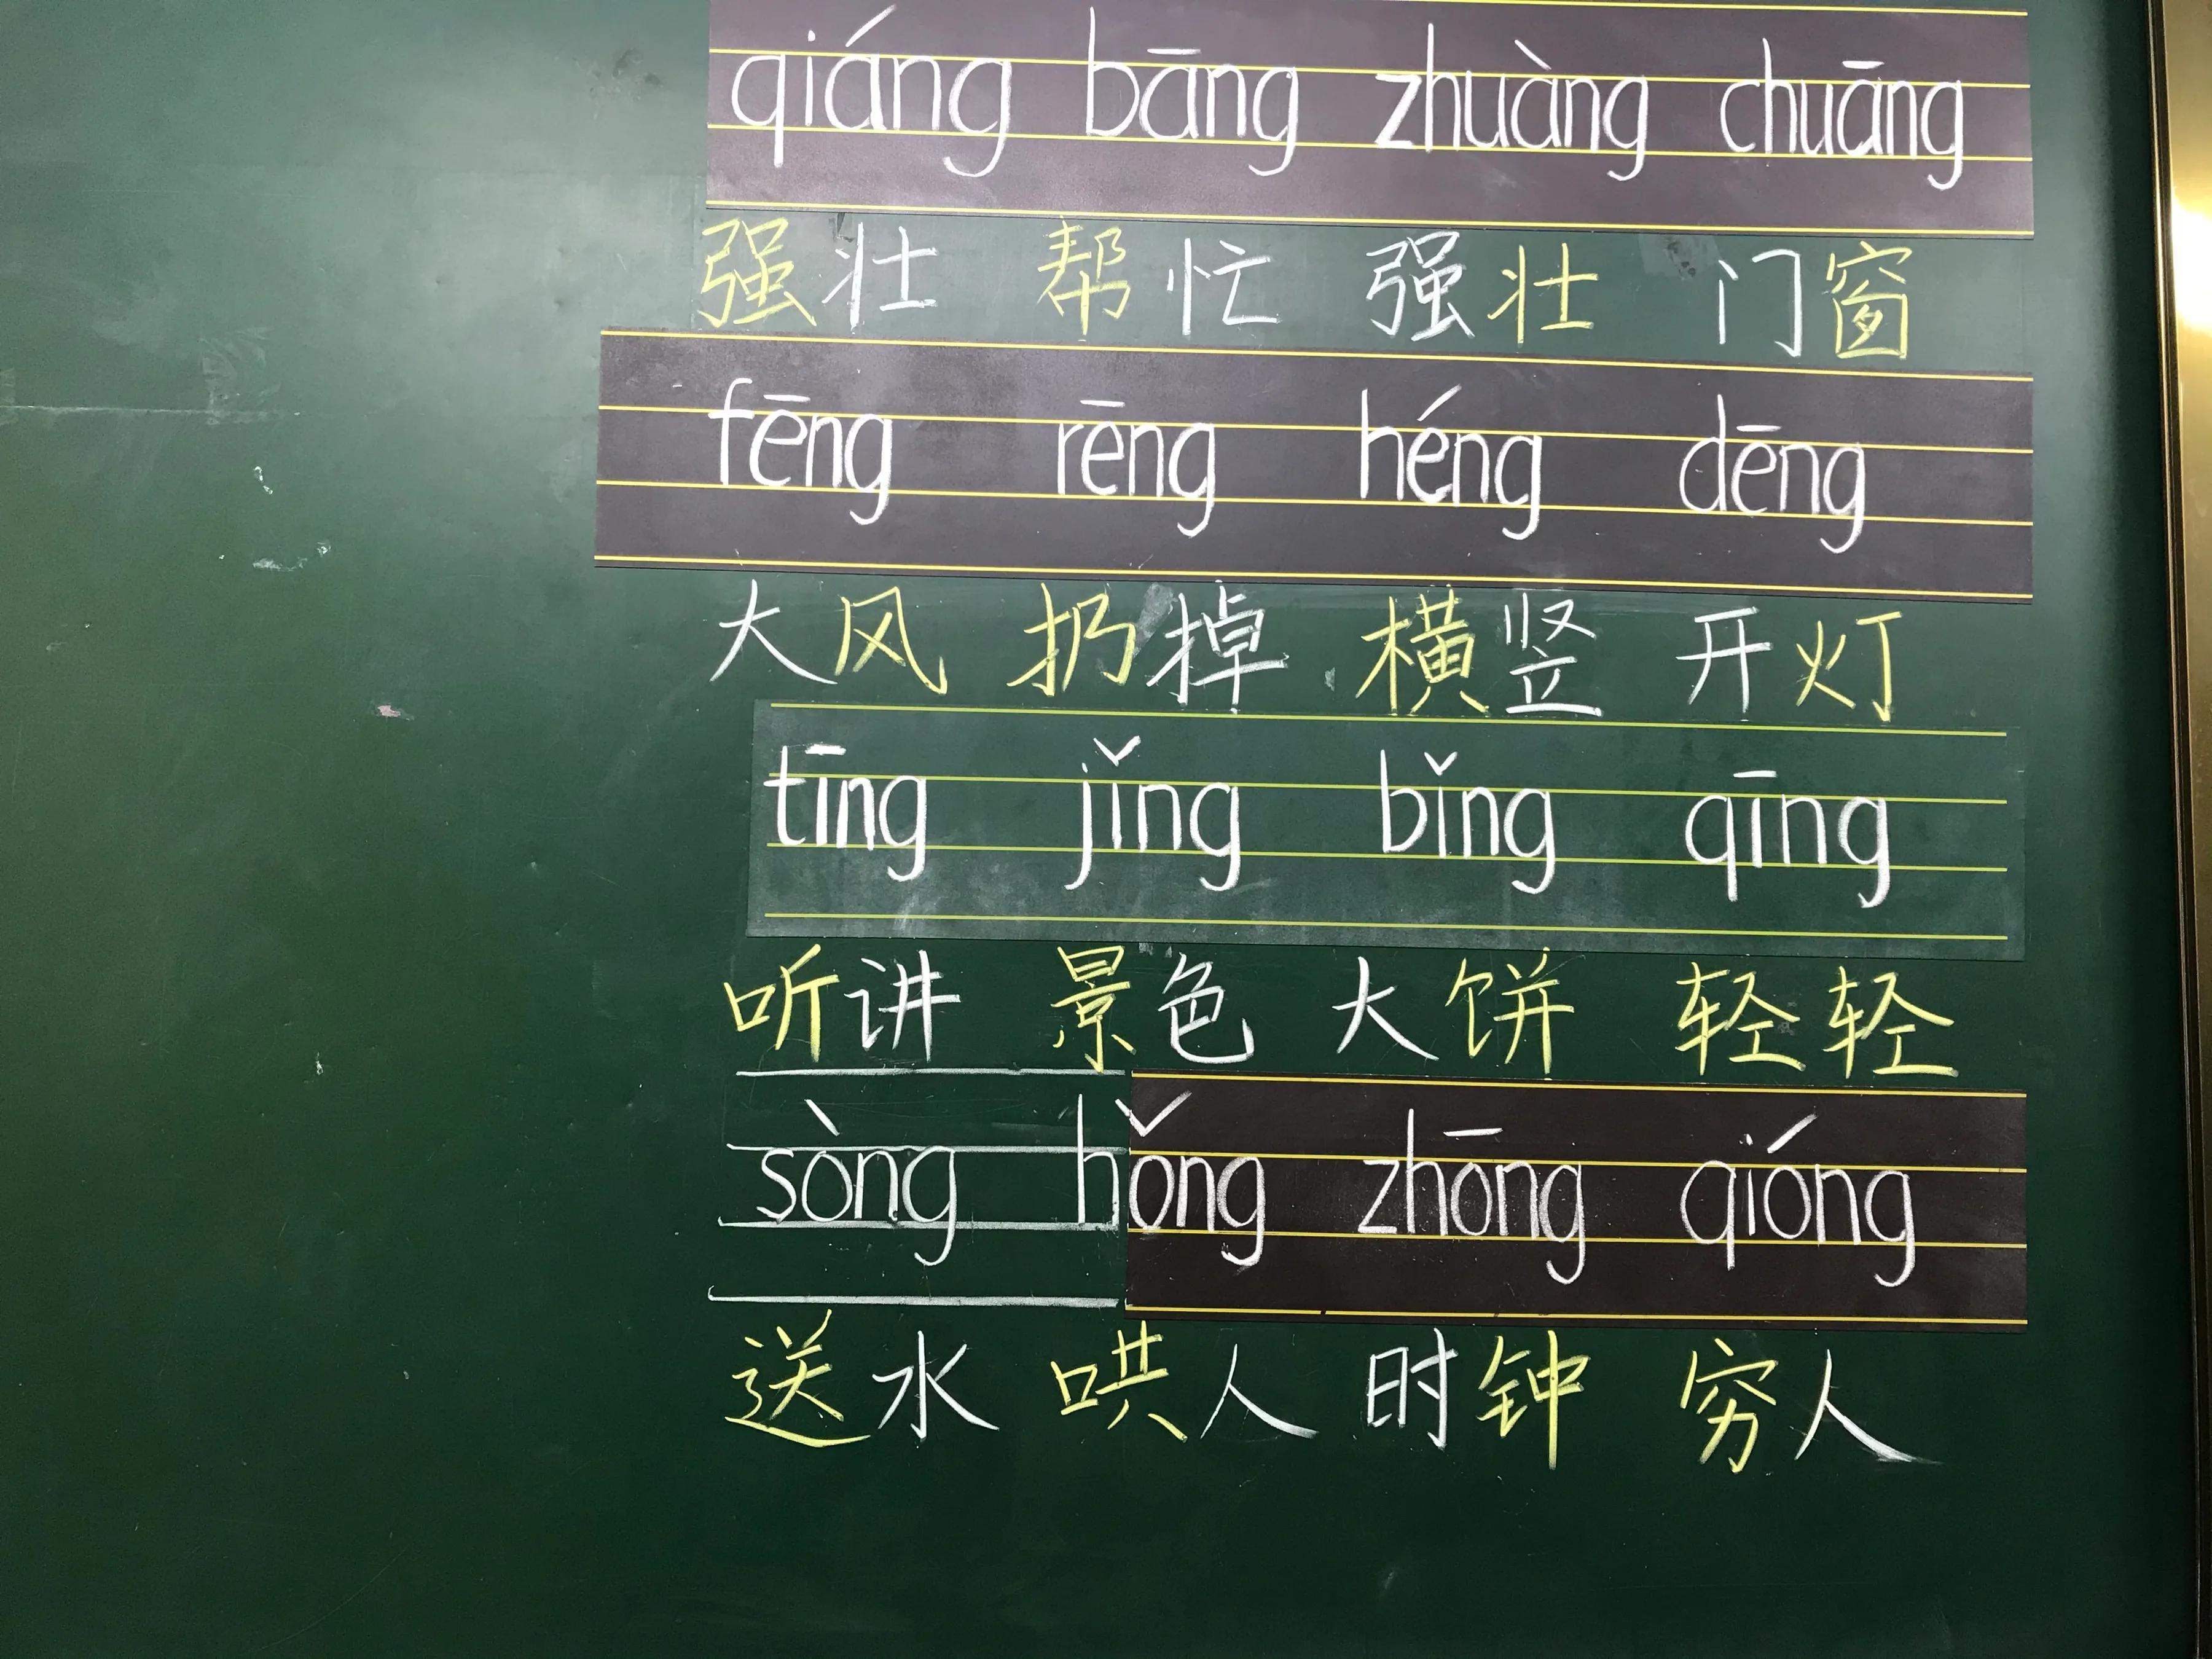 qiáng bāng zhuàng chuāng
强壮 帮忙 强壮 门窗
fēng rēng héng dēng
大风 扔掉 横竖 开灯
tīng jǐng bǐng qīng
听讲 景色 大饼 轻轻
sòng hǒng zhōng qióng
送水 哄人 时钟 穷人